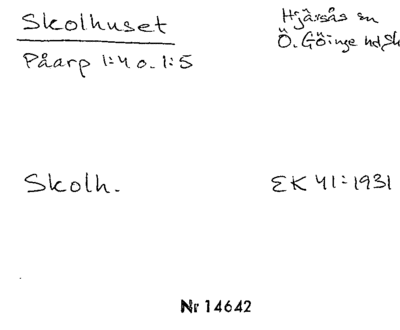 Skolhuset
Påarp 1:4 o. 1:5
Hjärsås sn
Ö. Göinge hd, Sk
Skolh.
EK 41:1931
Nr 14642